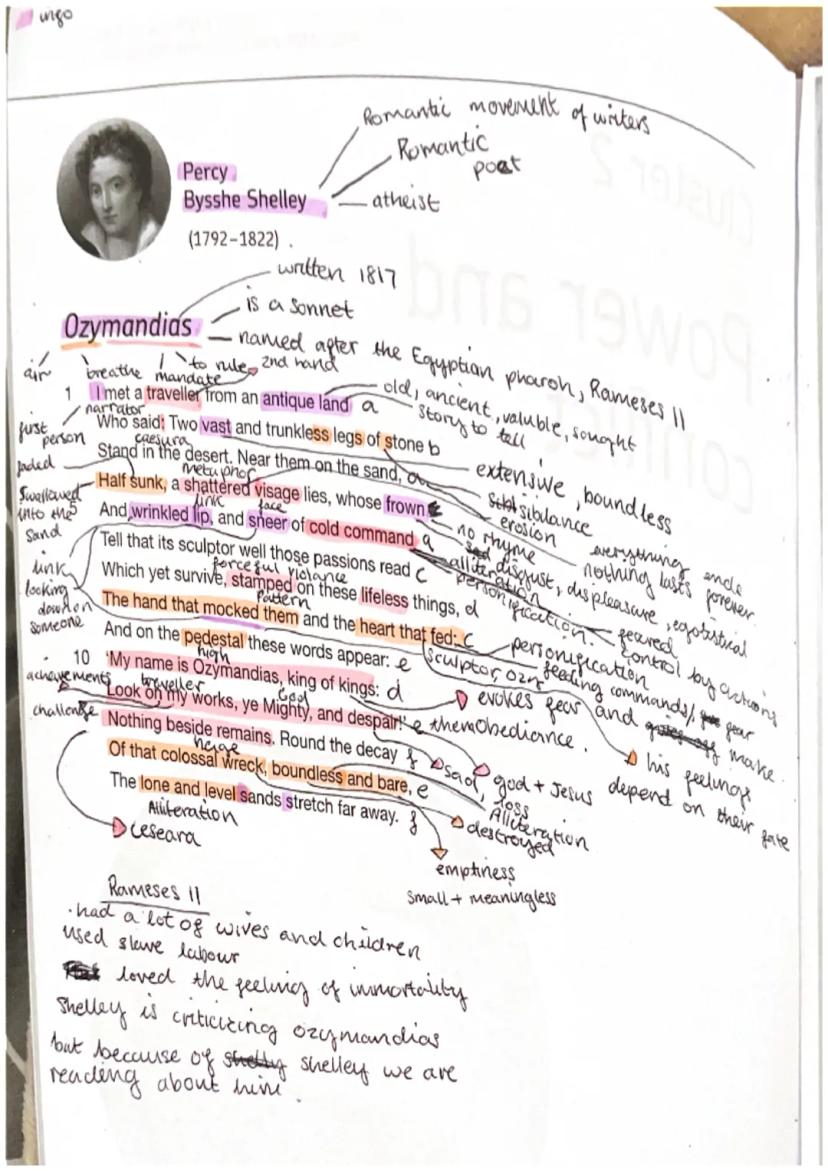 info
Romantic movement of writers
Romantic
poet
Percy
Bysshe Shelley
atheist
(1792–1822) .
written 1817
is a sonnet
Ozymandias
named after the Egyptian pharoh, Rameses II
air
breathe
mandate
to rule
2nd hand
1 I met a traveller from an antique land a
old, ancient, valuble, sought
story to tell
narrator
first
person
Who said: Two vast and trunkless legs of stone b
caesura
extensive, boundless
Stand in the desert. Near them on the sand, a
jaded
metaphor
sibilance
erosion
Half sunk, a shattered visage lies, whose frown
swallowed
into the
sand
link
face
no rhyme
everything ends
nothing lasts forever
5 And wrinkled lip, and sneer of cold command a
disgust, displeasure, egotistical
alliteration
personification.
feared
control by actions
Tell that its sculptor well those passions read c
link
looking
down on
someone
forceful violance
Which yet survive, stamped on these lifeless things, d
pattern
The hand that mocked them and the heart that fed: c
personification
feeding commands/ fear
sculptor, ozy
And on the pedestal these words appear: e
high
10 'My name is Ozymandias, king of kings: d
evokes fear and make
them obediance.
his feelings
depend on their fate
achievements
traveller
God
Look on my works, ye Mighty, and despair!' e
challenge
god + Jesus
Nothing beside remains. Round the decay f
sad,
loss
heuge
Of that colossal wreck, boundless and bare, e
Alliteration
destroyed
The lone and level sands stretch far away. f
Alliteration
Ceseara
emptiness
small + meaningless
Rameses II
. had a lot of wives and children
used slave labour
loved the feeling of immortality
Shelley is criticizing ozymandias
but because of shelly shelley we are
reading about him .